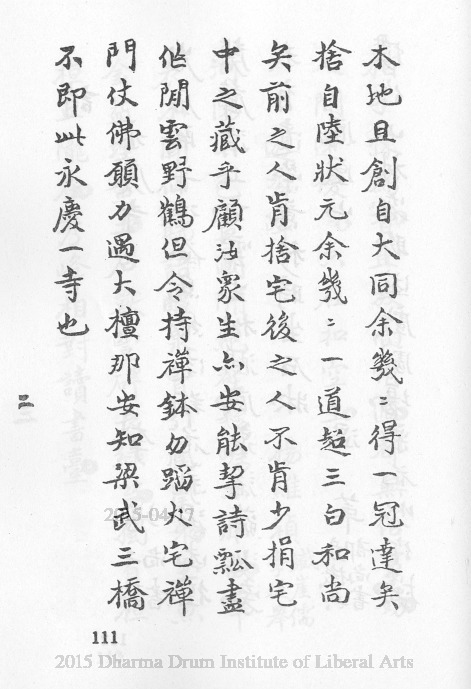 木地且創自大同余幾〻得一冠達矣
捨自陸狀元余幾〻一道超三白和尚
矣前之人肯捨宅後之人不肯少捐宅
中之藏乎顧汝衆生亦安能挈詩瓢盡
作閒雲野鶴但令持禪鉢勿蹈火宅禪
門仗佛願力遇大檀那安知梁武三橋
不即此永慶一寺也
二
111
2015-04-27
2015 Dharma Drum Institute of Liberal Arts